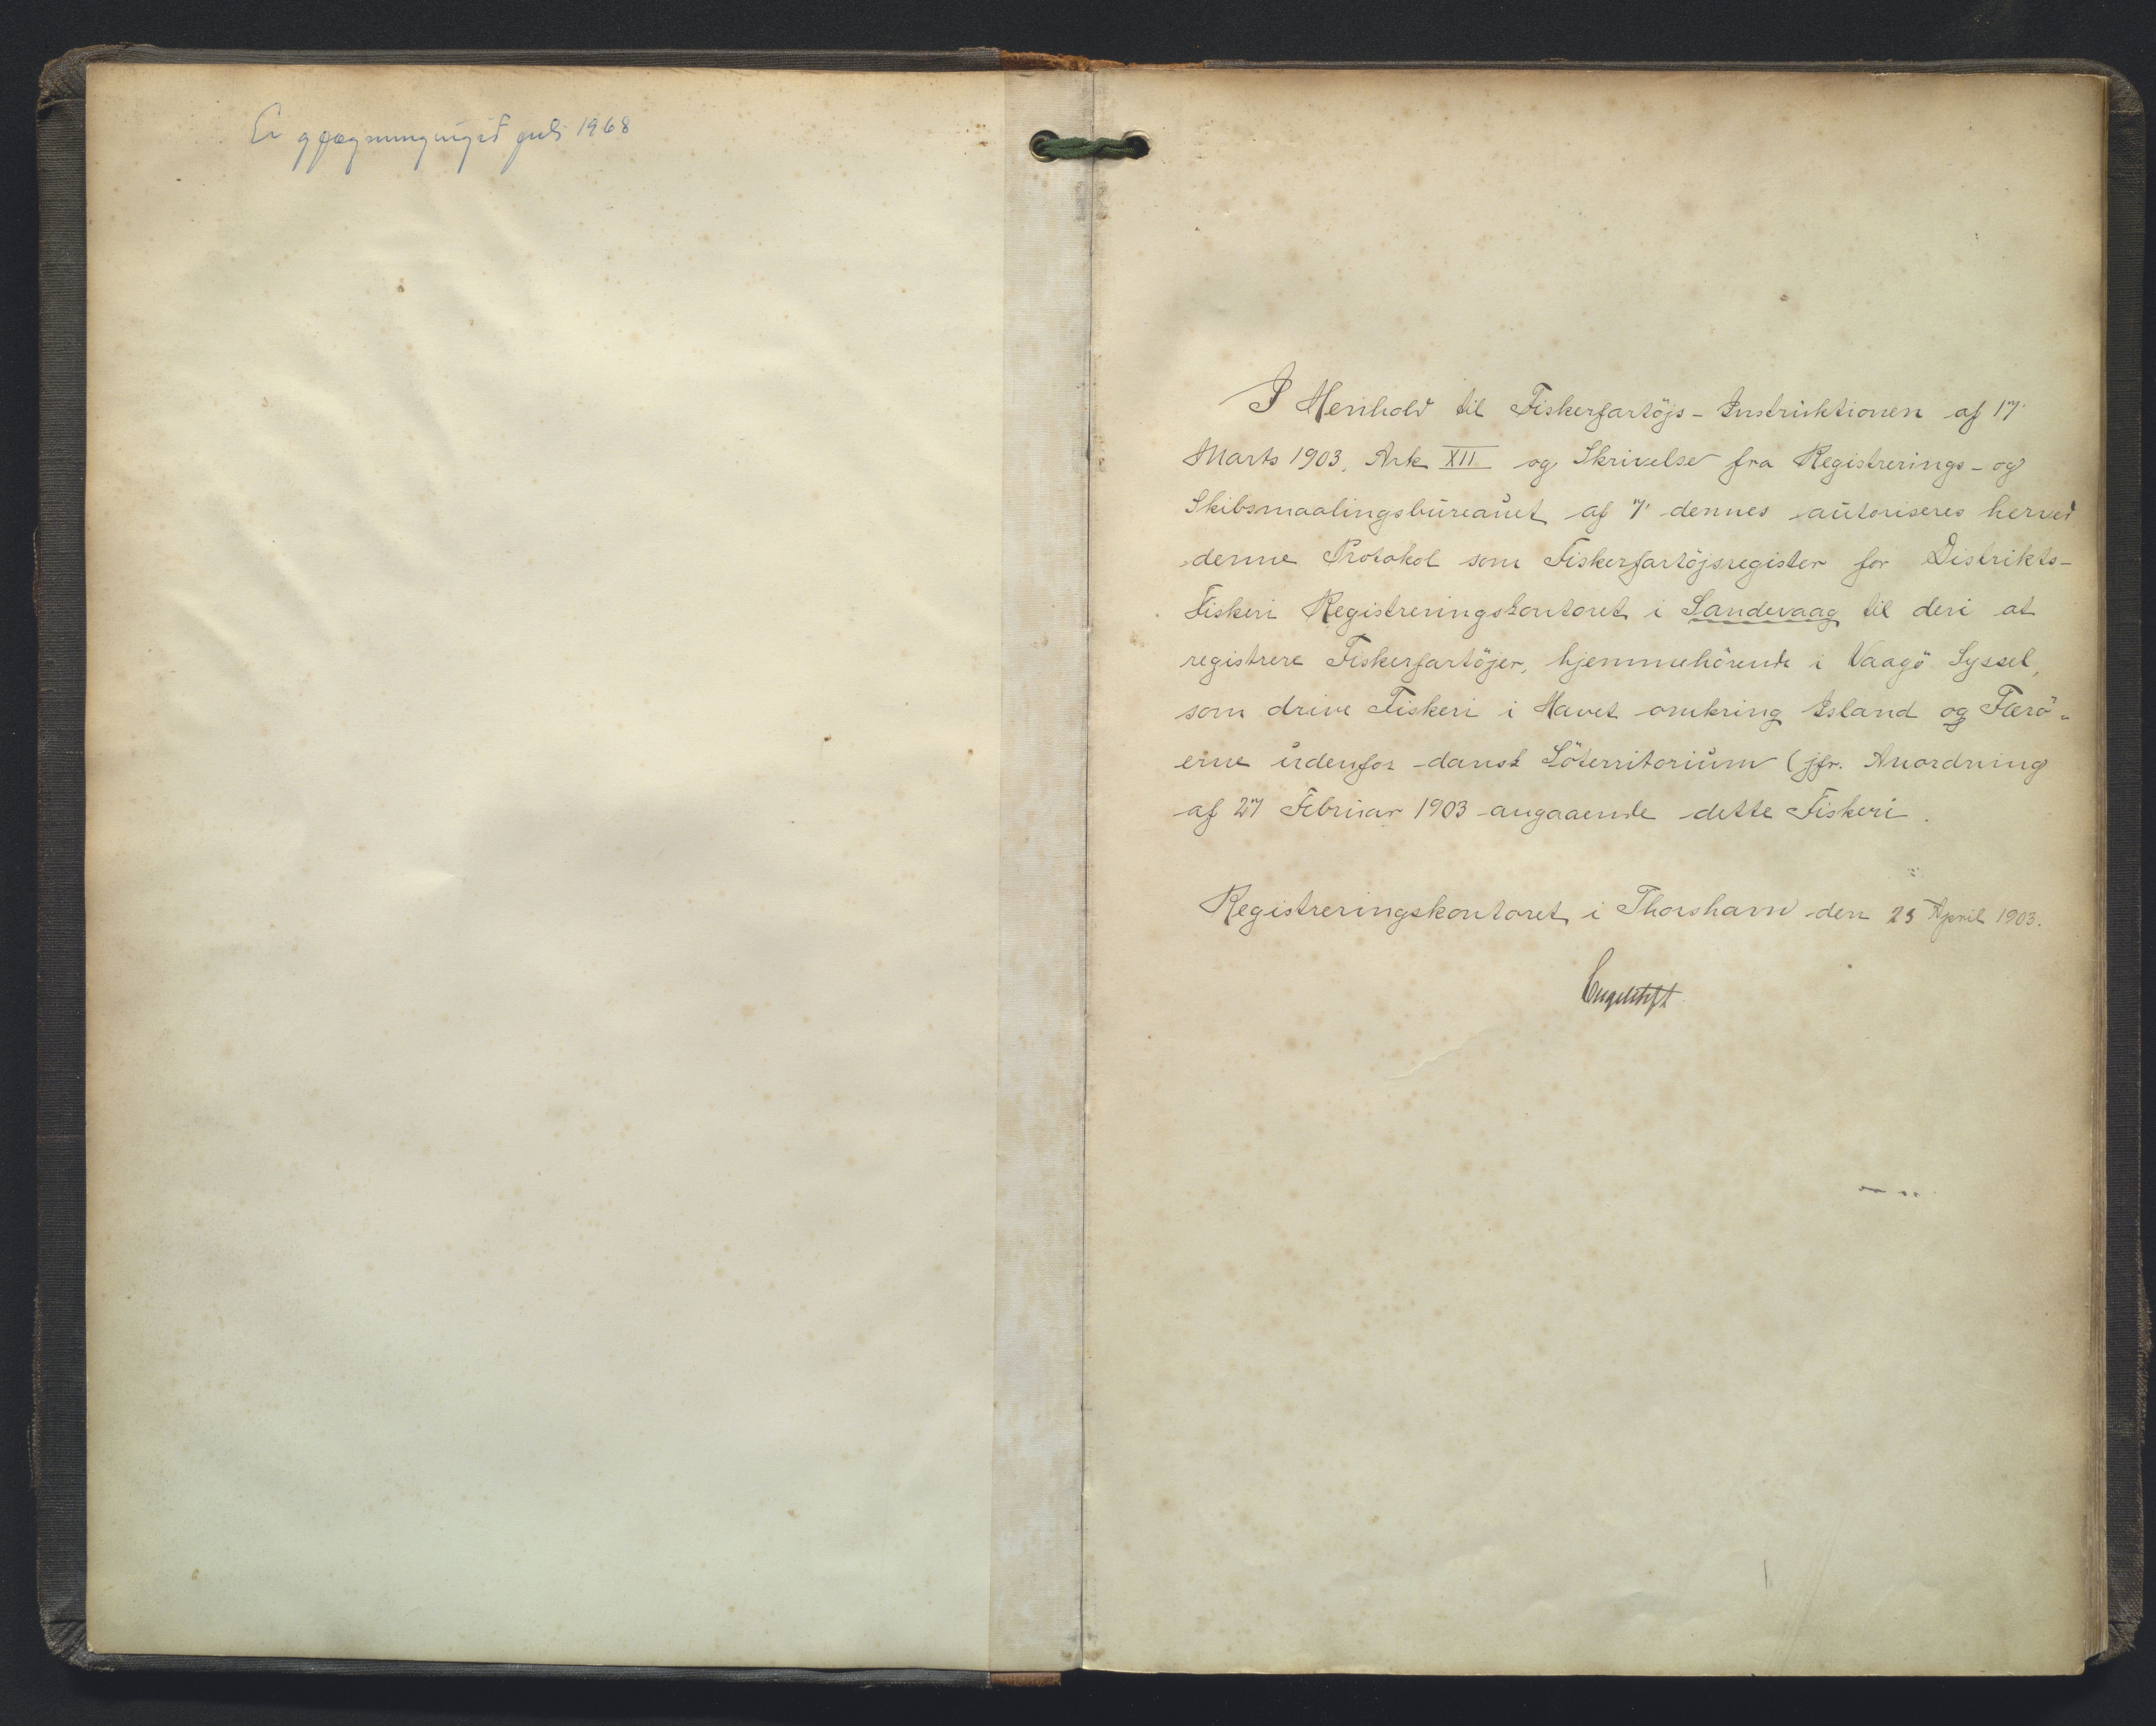 Er gjøgnumgingið juli 1968
I Henhold til Fiskerfartöjs-Instruktionen af 17'
Marts 1903, Ark XII og Skrivelse fra Registrerings- og
Skibsmaalingsbureauet af 7' dennes autoriseres herved
denne Protokol som Fiskerfartöjsregister for Distrikts-
Fiskeri Registreringskontoret i Sandevaag til deri at
registrere Fiskerfartöjer, hjemmehörende i Vaagö Syssel,
som drive Fiskeri i Havet omkring Island og Færö-
erne udenfor dansk Söterritorium (jfr. Anordning
af 27 Februar 1903 angaaende dette Fiskeri.
Registreringskontoret i Thorshavn den 25 April 1903.